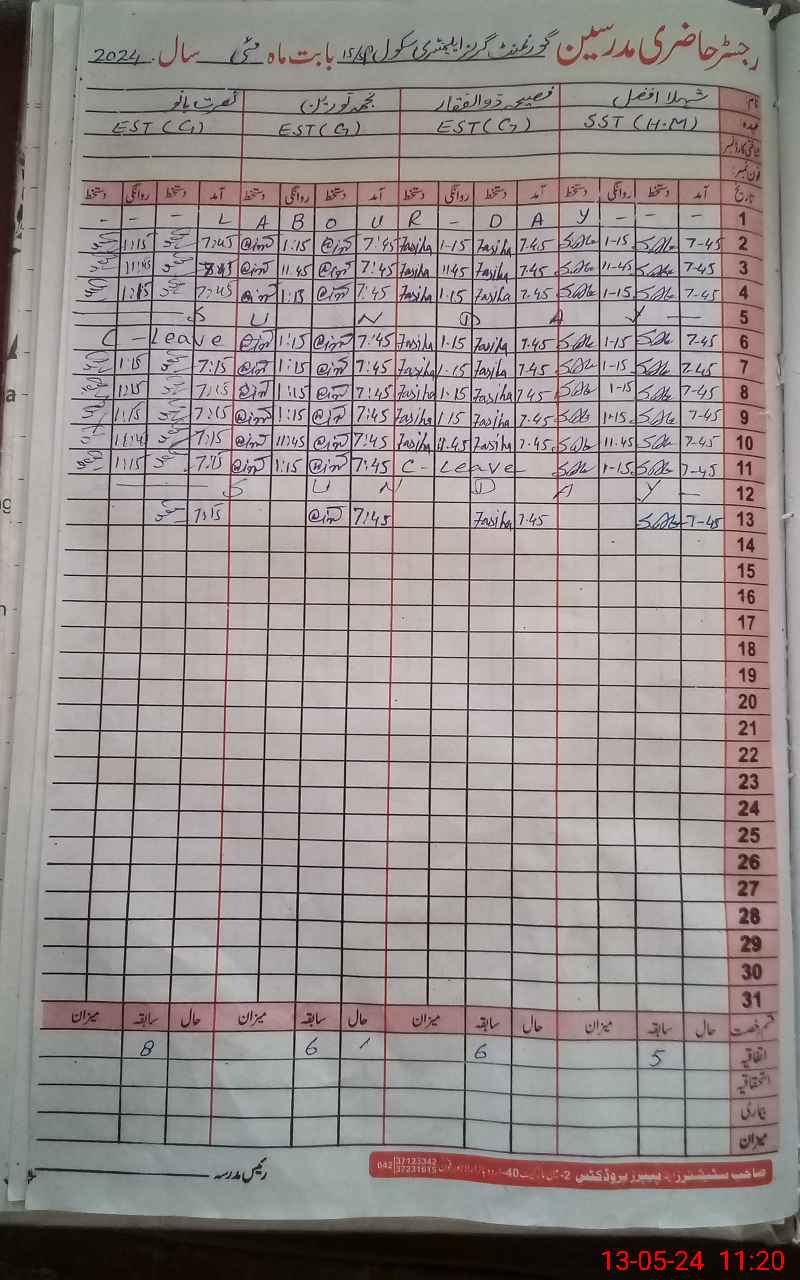 رجسٹر حاضری مدرسین گورنمنٹ گرلز ایلیمنٹری سکول 15/SP بابت ماہ مئی سال 2024
نام شہلا افضل فصیحہ ذوالفقار نجمہ نورین نصرت بانو
عہدہ SST (H.M) EST (G) EST (G) EST (G)
شناختی کارڈ نمبر
فون نمبر:
تاریخ آمد دستخط روانگی دستخط آمد دستخط روانگی دستخط آمد دستخط روانگی دستخط آمد دستخط روانگی دستخط
1 - - - L A B O U R - D A Y - - -
2 7-45 1-15 7.45 Fasiha 1-15 Fasiha 7:45 1:15 7:45 1:15
3 7-45 11-45 7.45 Fasiha 11.45 Fasiha 7:45 11.45 7:45 11:45
4 7-45 1-15 7.45 Fasiha 1.15 Fasiha 7:45 1:15 7:45 1:15
5 S U N D A Y
6 7-45 1-15 7.45 Fasiha 1.15 Fasiha 7:45 1:15 C-Leave
7 7-45 1-15 7.45 Fasiha 1-15 Fasiha 7:45 1:15 7:15 1:15
8 7-45 1-15 7.45 Fasiha 1.15 Fasiha 7:45 1:15 7:15 1:15
9 7-45 1-15 7.45 Fasiha 1.15 Fasiha 7:45 1:15 7:15 1:15
10 7-45 11.45 7.45 Fasiha 11.45 Fasiha 7:45 11:45 7:15
11 7-45 1-15 C-Leave 7:45 1:15 7:15 1:15
12 S U N D A Y
13 7-45 7.45 Fasiha 7:45 7:15
14
15
16
17
18
19
20
21
22
23
24
25
26
27
28
29
30
31
قسم رخصت حال سابقہ میزان حال سابقہ میزان حال سابقہ میزان حال سابقہ میزان
اتفاقیہ 5 6 1 6 8
استحقاقیہ
بیماری
میزان
رئیس مدرسہ
صاحب سٹیشنرز اینڈ پیپرز پروڈکٹس
042 37123342
37231615
13-05-24 11:20